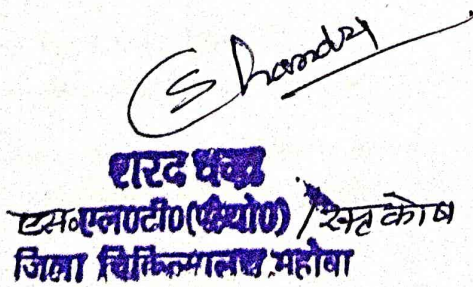 S Chandra
शरद चन्द्रा
एस०एल०टी०(पैथो०) / रक्त कोष
जिला चिकित्सालय, महोबा